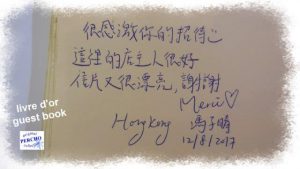 很感激你的招待
這裡的店主人很好
信片又很漂亮,謝謝
Merci♡
Hong Kong 馮子晴
12/8/2017
livre d'or
guest book
PERCHO